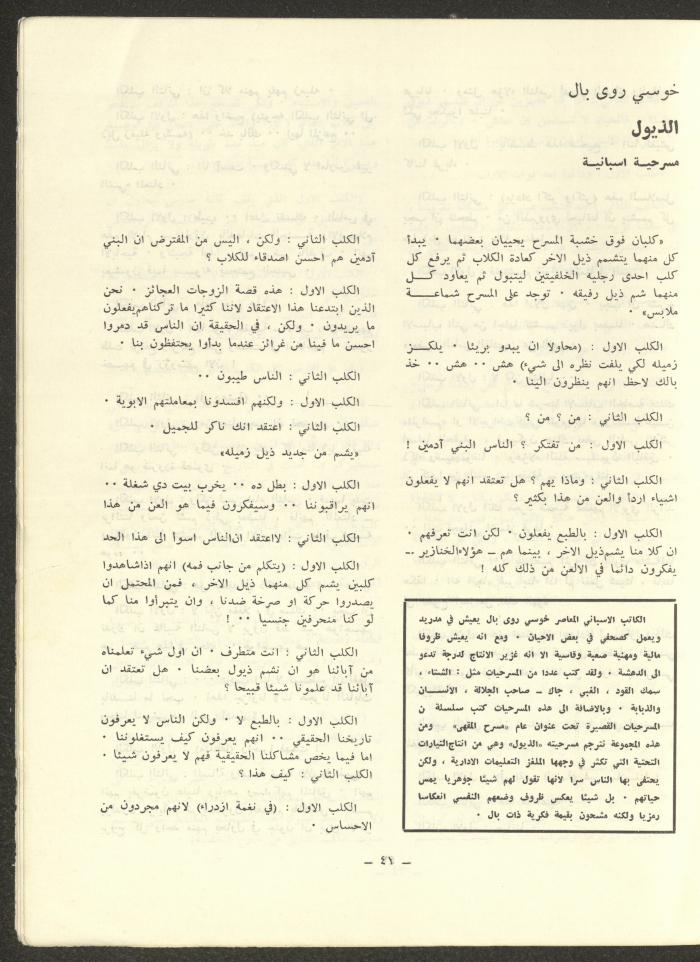 خوسي روى بال
الذيول
مسرحية اسبانية
«كلبان فوق خشبة المسرح يحييان بعضهما ٠ يبدأ
كل منهما يتشمم ذيل الاخر كعادة الكلاب ثم يرفع كل
كلب احدى رجليه الخلفيتين ليتبول ثم يعاود كـــل
منهما شم ذيل رفيقه ٠ توجد على المسرح شماعـــة
ملابس» ٠
الكلب الاول : (محاولا ان يبدو بريئا ٠ يلكـــز
زميله لكي يلفت نظره الى شيء) هش ٠٠ هش ٠٠ خذ
بالك لاحظ انهم ينظرون الينا ٠
الكلب الثاني : من ؟ من ؟
الكلب الاول : من تفتكر ؟ الناس البني آدمين !
الكلب الثاني : وماذا يهم ؟ هل تعتقد انهم لا يفعلون
اشياء اردأ والعن من هذا بكثير ؟
الكلب الاول : بالطبع يفعلون ٠ لكن انت تعرفهم ٠
ان كلا منا يشم ذيل الاخر ، بينما هم ــ هؤلاء الخنازير ــ
يفكرون دائما في الالعن من ذلك كله !
الكاتب الاسباني المعاصر خوسي روى بال يعيش في مدريد
ويعمل كصحفي في بعض الاحيان ٠ ومع انه يعيش ظروفا
مالية ومهنية صعبة وقاسية الا انه غزير الانتاج لدرجة تدعو
الى الدهشة ٠ ولقد كتب عددا من المسرحيات مثل : الشتاء ،
سمك القود ، الغبي ، جاك ــ صاحب الجلالة ، الانســـان
والذبابة ٠ وبالاضافة الى هذه المسرحيات كتب سلسلة ن
المسرحيات القصيرة تحت عنوان عام «مسرح المقهى» ٠ ومن
هذه المجموعة نترجم مسرحيته «الذيول» وهي من انتاج التيارات
التحتية التي تكثر في وجهها الملغز التعليمات الادارية ، ولكن
يحتفى بها الناس سرا لانها تقول لهم شيئا جوهريا يمس
حياتهم ٠ بل شيئا يعكس ظروف وضعهم النفسي انعكاسا
رمزيا ولكنه مشحون بقيمة فكرية ذات بال ٠
الكلب الثاني : ولكن ، اليس من المفترض ان البني
آدمين هم احسن اصدقاء للكلاب ؟
الكلب الاول : هذه قصة الزوجات العجائز ٠ نحن
الذين ابتدعنا هذا الاعتقاد لاننا كثيرا ما تركناهم يفعلون
ما يريدون ٠ ولكن ، في الحقيقة ان الناس قد دمروا
احسن ما فينا من غرائز عندما بدأوا يحتفظون بنا ٠
الكلب الثاني : الناس طيبون ٠٠
الكلب الاول : ولكنهم افسدونا بمعاملتهم الابوية ٠
الكلب الثاني : اعتقد انك ناكر للجميل ٠
«يشم من جديد ذيل زميله»
الكلب الاول : بطل ده ٠٠ يخرب بيت دي شغلة ٠٠
انهم يراقبوننا ٠٠ وسيفكرون فيما هو العن من هذا
الكلب الثاني : لااعتقد ان الناس اسوأ الى هذا الحد
الكلب الاول : (يتكلم من جانب فمه) انهم اذا شاهدوا
كلبين يشم كل منهما ذيل الاخر ، فمن المحتمل ان
يصدروا حركة او صرخة ضدنا ، وان يتبرأوا منا كما
لو كنا منحرفين جنسيا ٠٠ !
الكلب الثاني : انت متطرف ٠ ان اول شيء تعلمناه
من آبائنا هو ان نشم ذيول بعضنا ٠ هل تعتقد ان
آبائنا قد علمونا شيئا قبيحا ؟
الكلب الاول : بالطبع لا ٠ ولكن الناس لا يعرفون
تاريخنا الحقيقي ٠٠ انهم يعرفون كيف يستغلوننا ٠
اما فيما يخص مشاكلنا الحقيقية فهم لا يعرفون شيئا ٠
الكلب الثاني : كيف هذا ؟
الكلب الاول : (في نغمة ازدراء) لانهم مجردون من
الاحساس ٠
ــ ٤٧ ــ